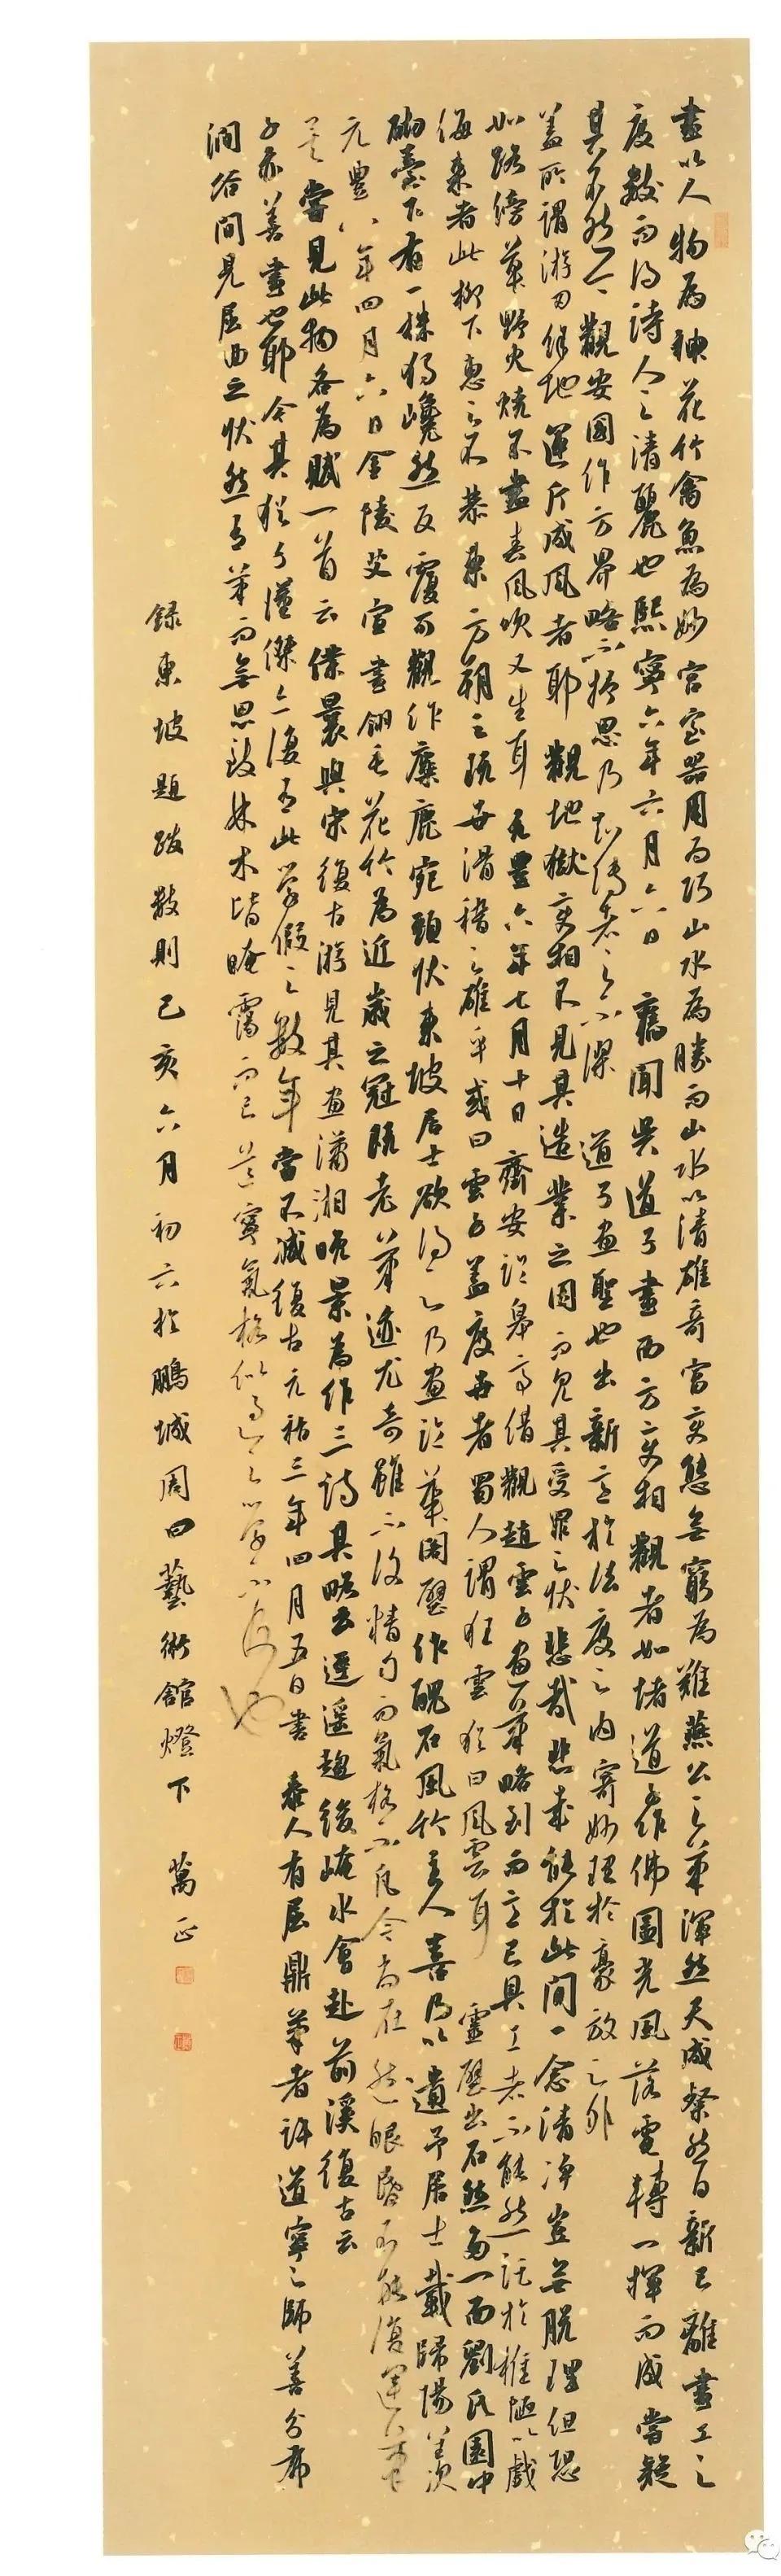 畫以人物為神花竹禽魚為妙宮室器用為巧山水為勝而山水以清雄奇富變態無窮為難燕公之筆渾然天成粲然日新已離畫工之
度數而得詩人之清麗也熙寧六年六月六日 舊聞吳道子畫西方變相觀者如堵道子作佛圓光風落電轉一揮而成嘗疑
其不然今觀安國作方界略不抒思乃知傳者之不謬 道子畫聖也出新意於法度之內寄妙理於豪放之外
蓋所謂游刃餘地運斤成風者耶 觀地獄變相不見其造業之因而見其受罪之狀悲哉悲哉能於此間一念清淨豈無脫理但恐
如路傍草野火燒不盡春風吹又生耳 元豐六年七月十日齊安臨皋亭借觀 趙雲子畫筆略到而意已具工者不能然託於椎陋以戲
侮來者此柳下惠之不恭東方朔之玩世滑稽之雄乎或曰雲子蓋度世者蜀人謂狂雲猶曰風雲耳 靈壁出石然多一面劉氏園中
砌臺下有一株獨巉然反覆可觀作麋鹿宛頸狀東坡居士欲得之乃畫臨華閣壁作醜石風竹主人喜乃以遺予居士載歸陽羨
元豐八年四月六日 金陵艾宣畫翎毛花竹為近歲之冠既老筆迹尤奇雖不復精勻而氣格不凡今尚在然眼昏不能復運筆矣
嘗見此物各為賦一首云 僕曩與宋復古游見其畫瀟湘晚景為作三詩其略云逕遥趨後崦水會赴前溪復古云
子亦善畫也耶今其猶子漢傑亦復有此學假之數年當不減復古元祐三年四月五日書 秦人有屈鼎筆者許道寧之師善分布
澗谷間見屈曲之狀然有筆而無思致林木皆晻靄而已道寧氣格似過之學不及也
錄東坡題跋數則己亥六月初六於鵬城周日藝術館燈下 萬正